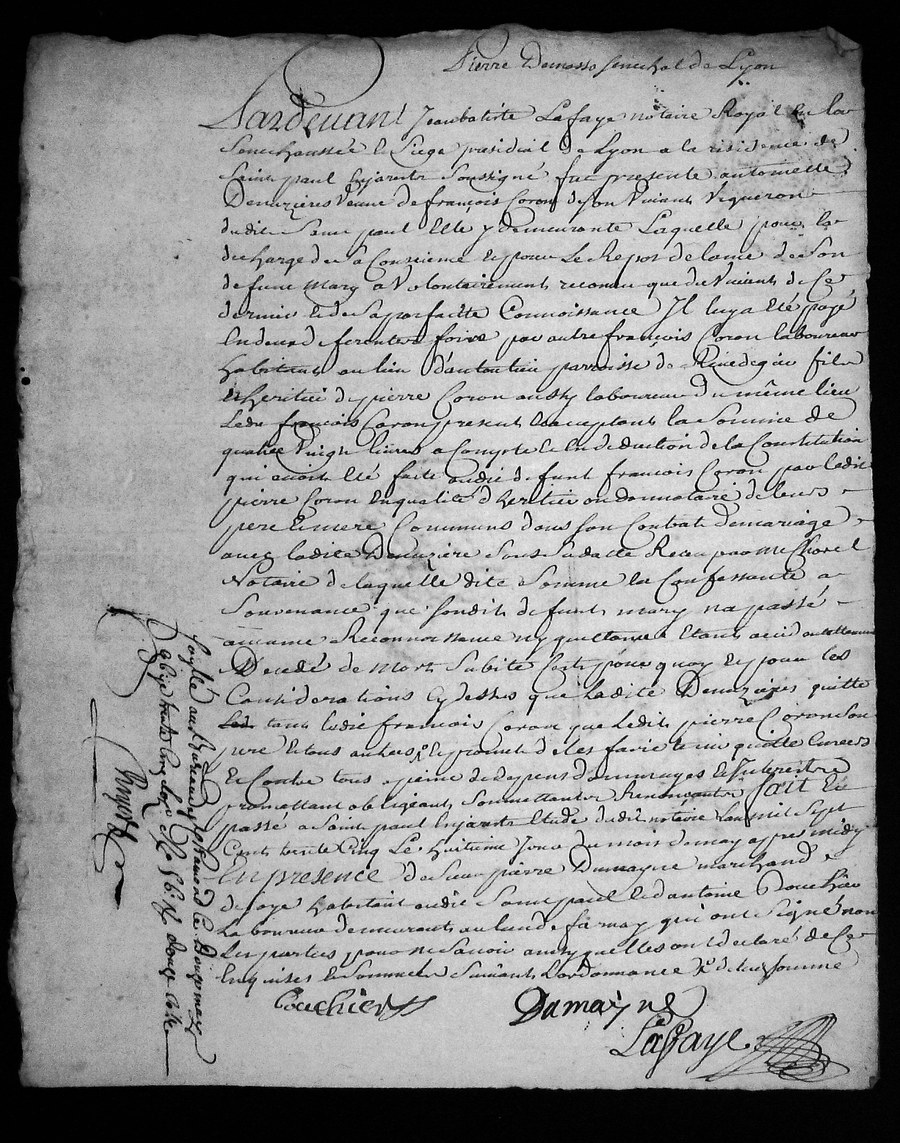 Pierre Demasso senechal de Lyon
Pardevant Jean batiste Lafaye notaire Royal en la
Senechaussée et Siege presidial de Lyon a la residence de
Saint paul Enjarests Soussigné fut presente antoinette
Denuzières veuve de françois Coron de son Vivant Vigneron
dudit Saint paul Elle y demeurante Laquelle pour la
decharge de sa Consience et pour Le Repos de lame de Son
defunt Mary a Volontairement reconnu que du Vivant de Ce
dernier et de Sa parfaitte Connoissance Il luy a Eté payé
En deux diferentes foires par autre françois Coron laboureur
habitant au lieu parroisse de fils
et heritier de pierre Coron aussy laboureur du même lieu
Ledit françois Coron present et acceptant la Somme de
quatre Vingt livres a Compte et En deduction de la Constitution
qui avoit Eté faite audit defunt francois Coron par ledit
pierre Coron En qualité d'heritier ou donnataire de leurs
pere Et mere Communs dans son Contrat de mariage
avec ladite Denuzière Sous Sa datte Receu par Me
Notaire de laquelle dite Somme la Confessante a
Souvenance que Sondit defunt mary n'a passé
aucune Reconnoissance ny quittance Etant
Decedé de Mort Subite C'est pour quoy Et pour les
Considerations Cy dessus que Ladite Denuzières quitte
tant ledit francois Coron que Ledit pierre Coron Son
pere Et tous autres Et promet d'Les faire tenir quitte Envers
Et Contre tous a peine de depens dommages Et Interests
promettant obligeant Soumettant Renonceant fait Et
passé a Saint paul Enjarests Etude dudit notaire Lan mil Sept
Cents trente Cinq Le huitieme Jour du mois de may apres midy
En presence de Sieur pierre Dumayne marchand
de soye habitant audit Saint paul et d antoine Couchier
Laboureur demeurant au lieu de qui ont Signé non
Les parties pour ne Savoir ainsy quelles ont declaré de Ce
Enquises Et Sommées Suivant L'ordonnance
Couchier
Dumaÿne
Lafaye